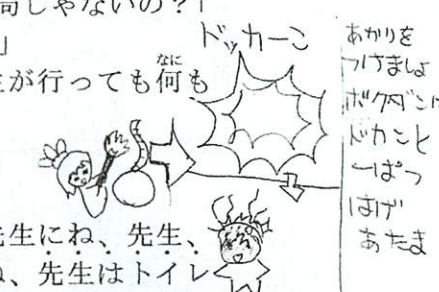 局じゃないの？」
」
生が行っても何も
なに
先生にね、先生、
ね、先生はトイレ
ドッカーン
あかりを
つけましょ
ボクダンに
ドカンと
一ぱつ
はげ
あたま